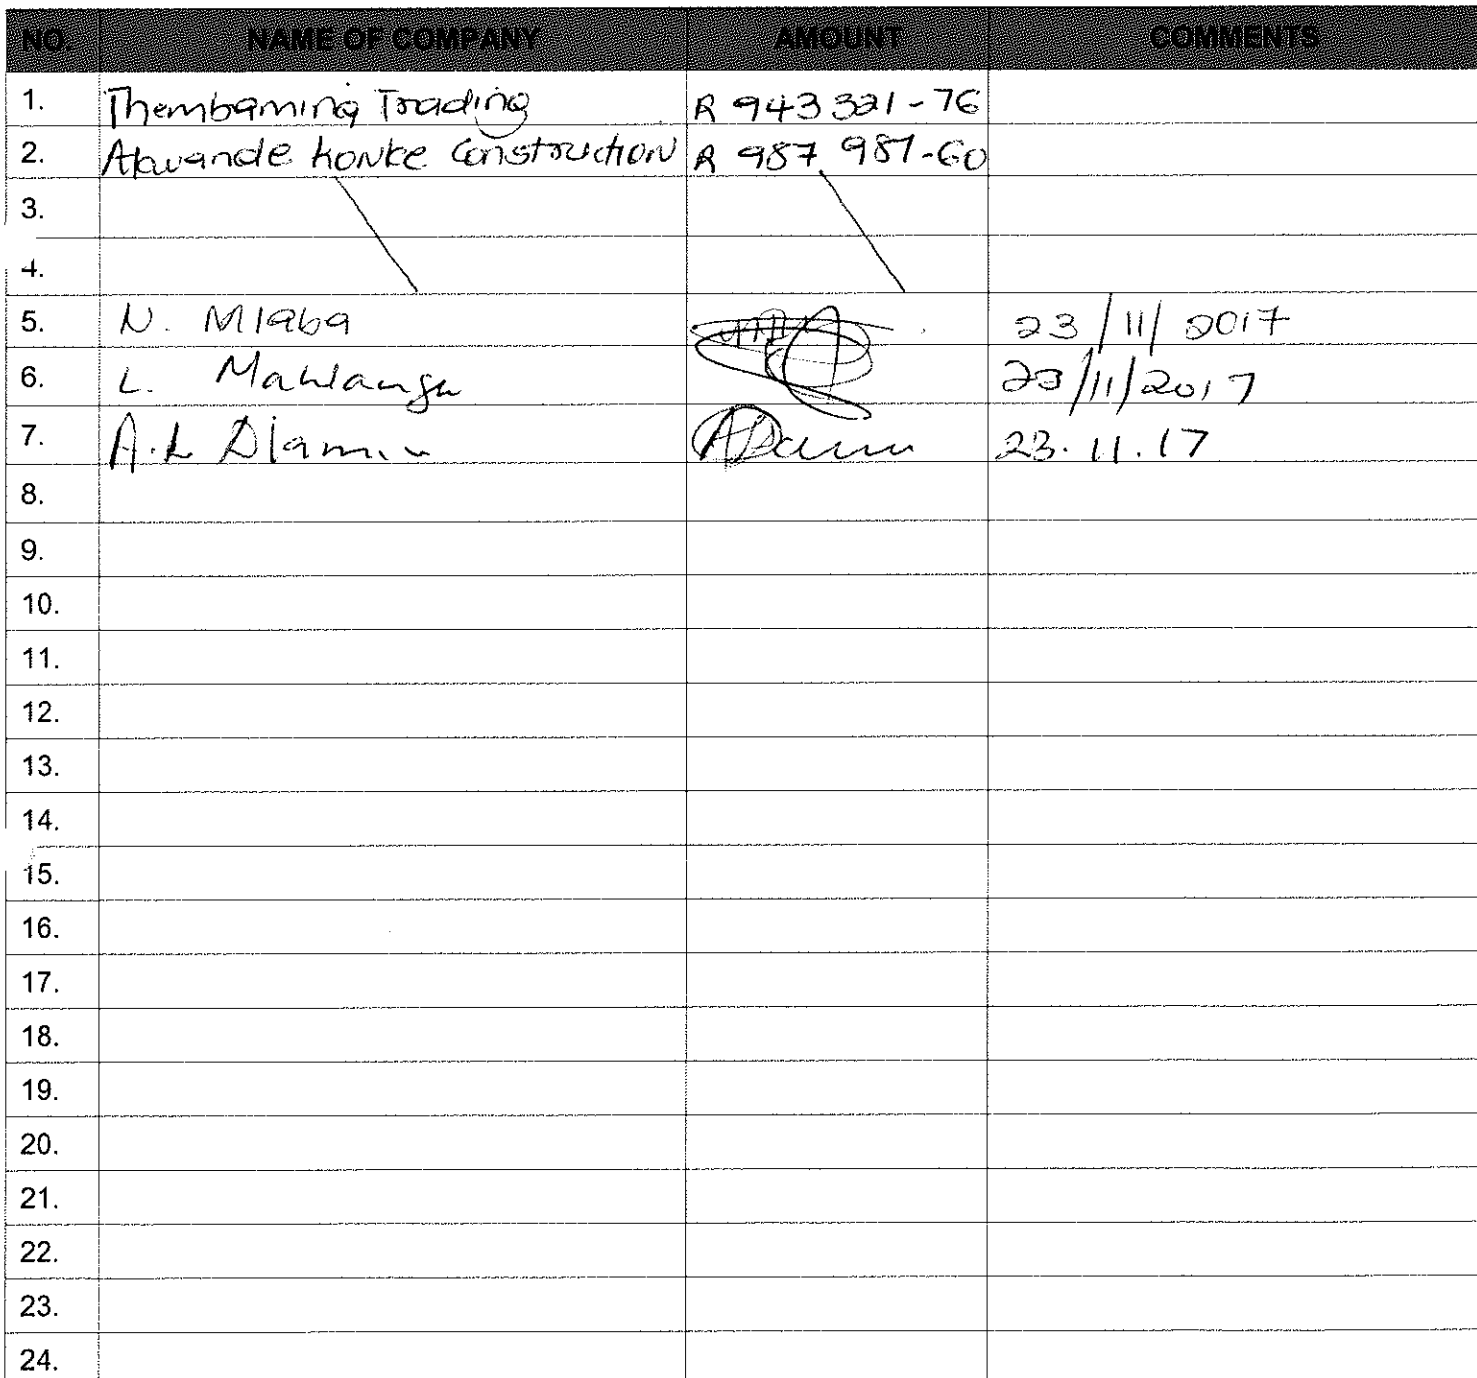 NO. NAME OF COMPANY AMOUNT COMMENTS
1. Thembamina Trading R 943 321-76
2. Akwande Konke Construction R 987 987-60
3.
4.
5. N. Mlaba 23/11/2017
6. L. Mahlangu 23/11/2017
7. A.L Dlamini 23.11.17
8.
9.
10.
11.
12.
13.
14.
15.
16.
17.
18.
19.
20.
21.
22.
23.
24.